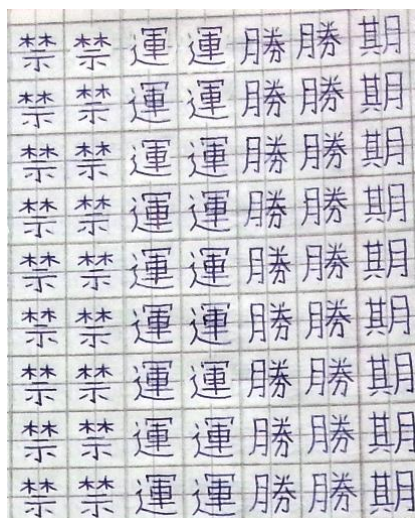 禁禁運運勝勝期
禁禁運運勝勝期
禁禁運運勝勝期
禁禁運運勝勝期
禁禁運運勝勝期
禁禁運運勝勝期
禁禁運運勝勝期
禁禁運運勝勝期
禁禁運運勝勝期